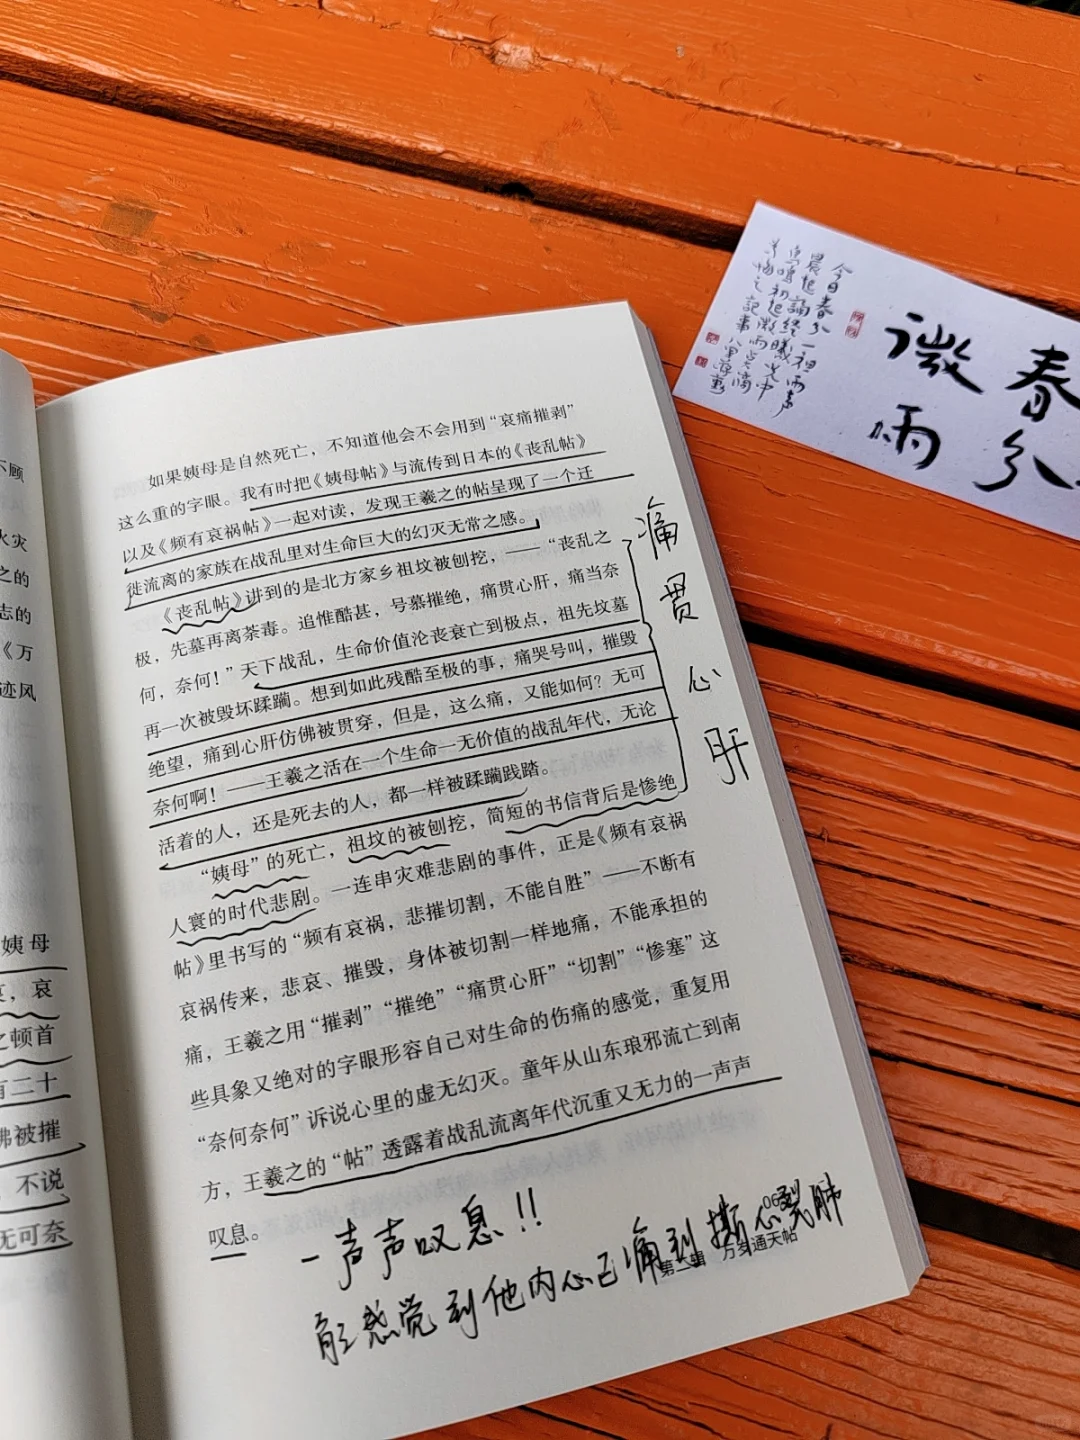 不顾
火灾
之的
志的
《万
迹风
姨母
哀,哀
之顿首
有二十
佛被摧
,不说
无可奈
如果姨母是自然死亡,不知道他会不会用到“哀痛摧剥”
这么重的字眼。我有时把《姨母帖》与流传到日本的《丧乱帖》
以及《频有哀祸帖》一起对读,发现王羲之的帖呈现了一个迁
徙流离的家族在战乱里对生命巨大的幻灭无常之感。
《丧乱帖》讲到的是北方家乡祖坟被刨挖,——“丧乱之
极,先墓再离荼毒。追惟酷甚,号慕摧绝,痛贯心肝,痛当奈
何,奈何!”天下战乱,生命价值沦丧衰亡到极点,祖先坟墓
再一次被毁坏蹂躏。想到如此残酷至极的事,痛哭号叫,摧毁
绝望,痛到心肝仿佛被贯穿,但是,这么痛,又能如何?无可
奈何啊!——王羲之活在一个生命一无价值的战乱年代,无论
活着的人,还是死去的人,都一样被蹂躏践踏。
“姨母”的死亡,祖坟的被刨挖,简短的书信背后是惨绝
人寰的时代悲剧。一连串灾难悲剧的事件,正是《频有哀祸
帖》里书写的“频有哀祸,悲摧切割,不能自胜”——不断有
哀祸传来,悲哀、摧毁,身体被切割一样地痛,不能承担的
痛,王羲之用“摧剥”“摧绝”“痛贯心肝”“切割”“惨塞”这
些具象又绝对的字眼形容自己对生命的伤痛的感觉,重复用
“奈何奈何”诉说心里的虚无幻灭。童年从山东琅邪流亡到南
方,王羲之的“帖”透露着战乱流离年代沉重又无力的一声声
叹息。
痛贯心肝
一声声叹息!!
能感觉到他内心已痛到撕心裂肺
第二辑 万岁通天帖
春分
微雨
今日春分一裡雨声
晨起誦经曦光中
鸟鳴初起微雨点滴